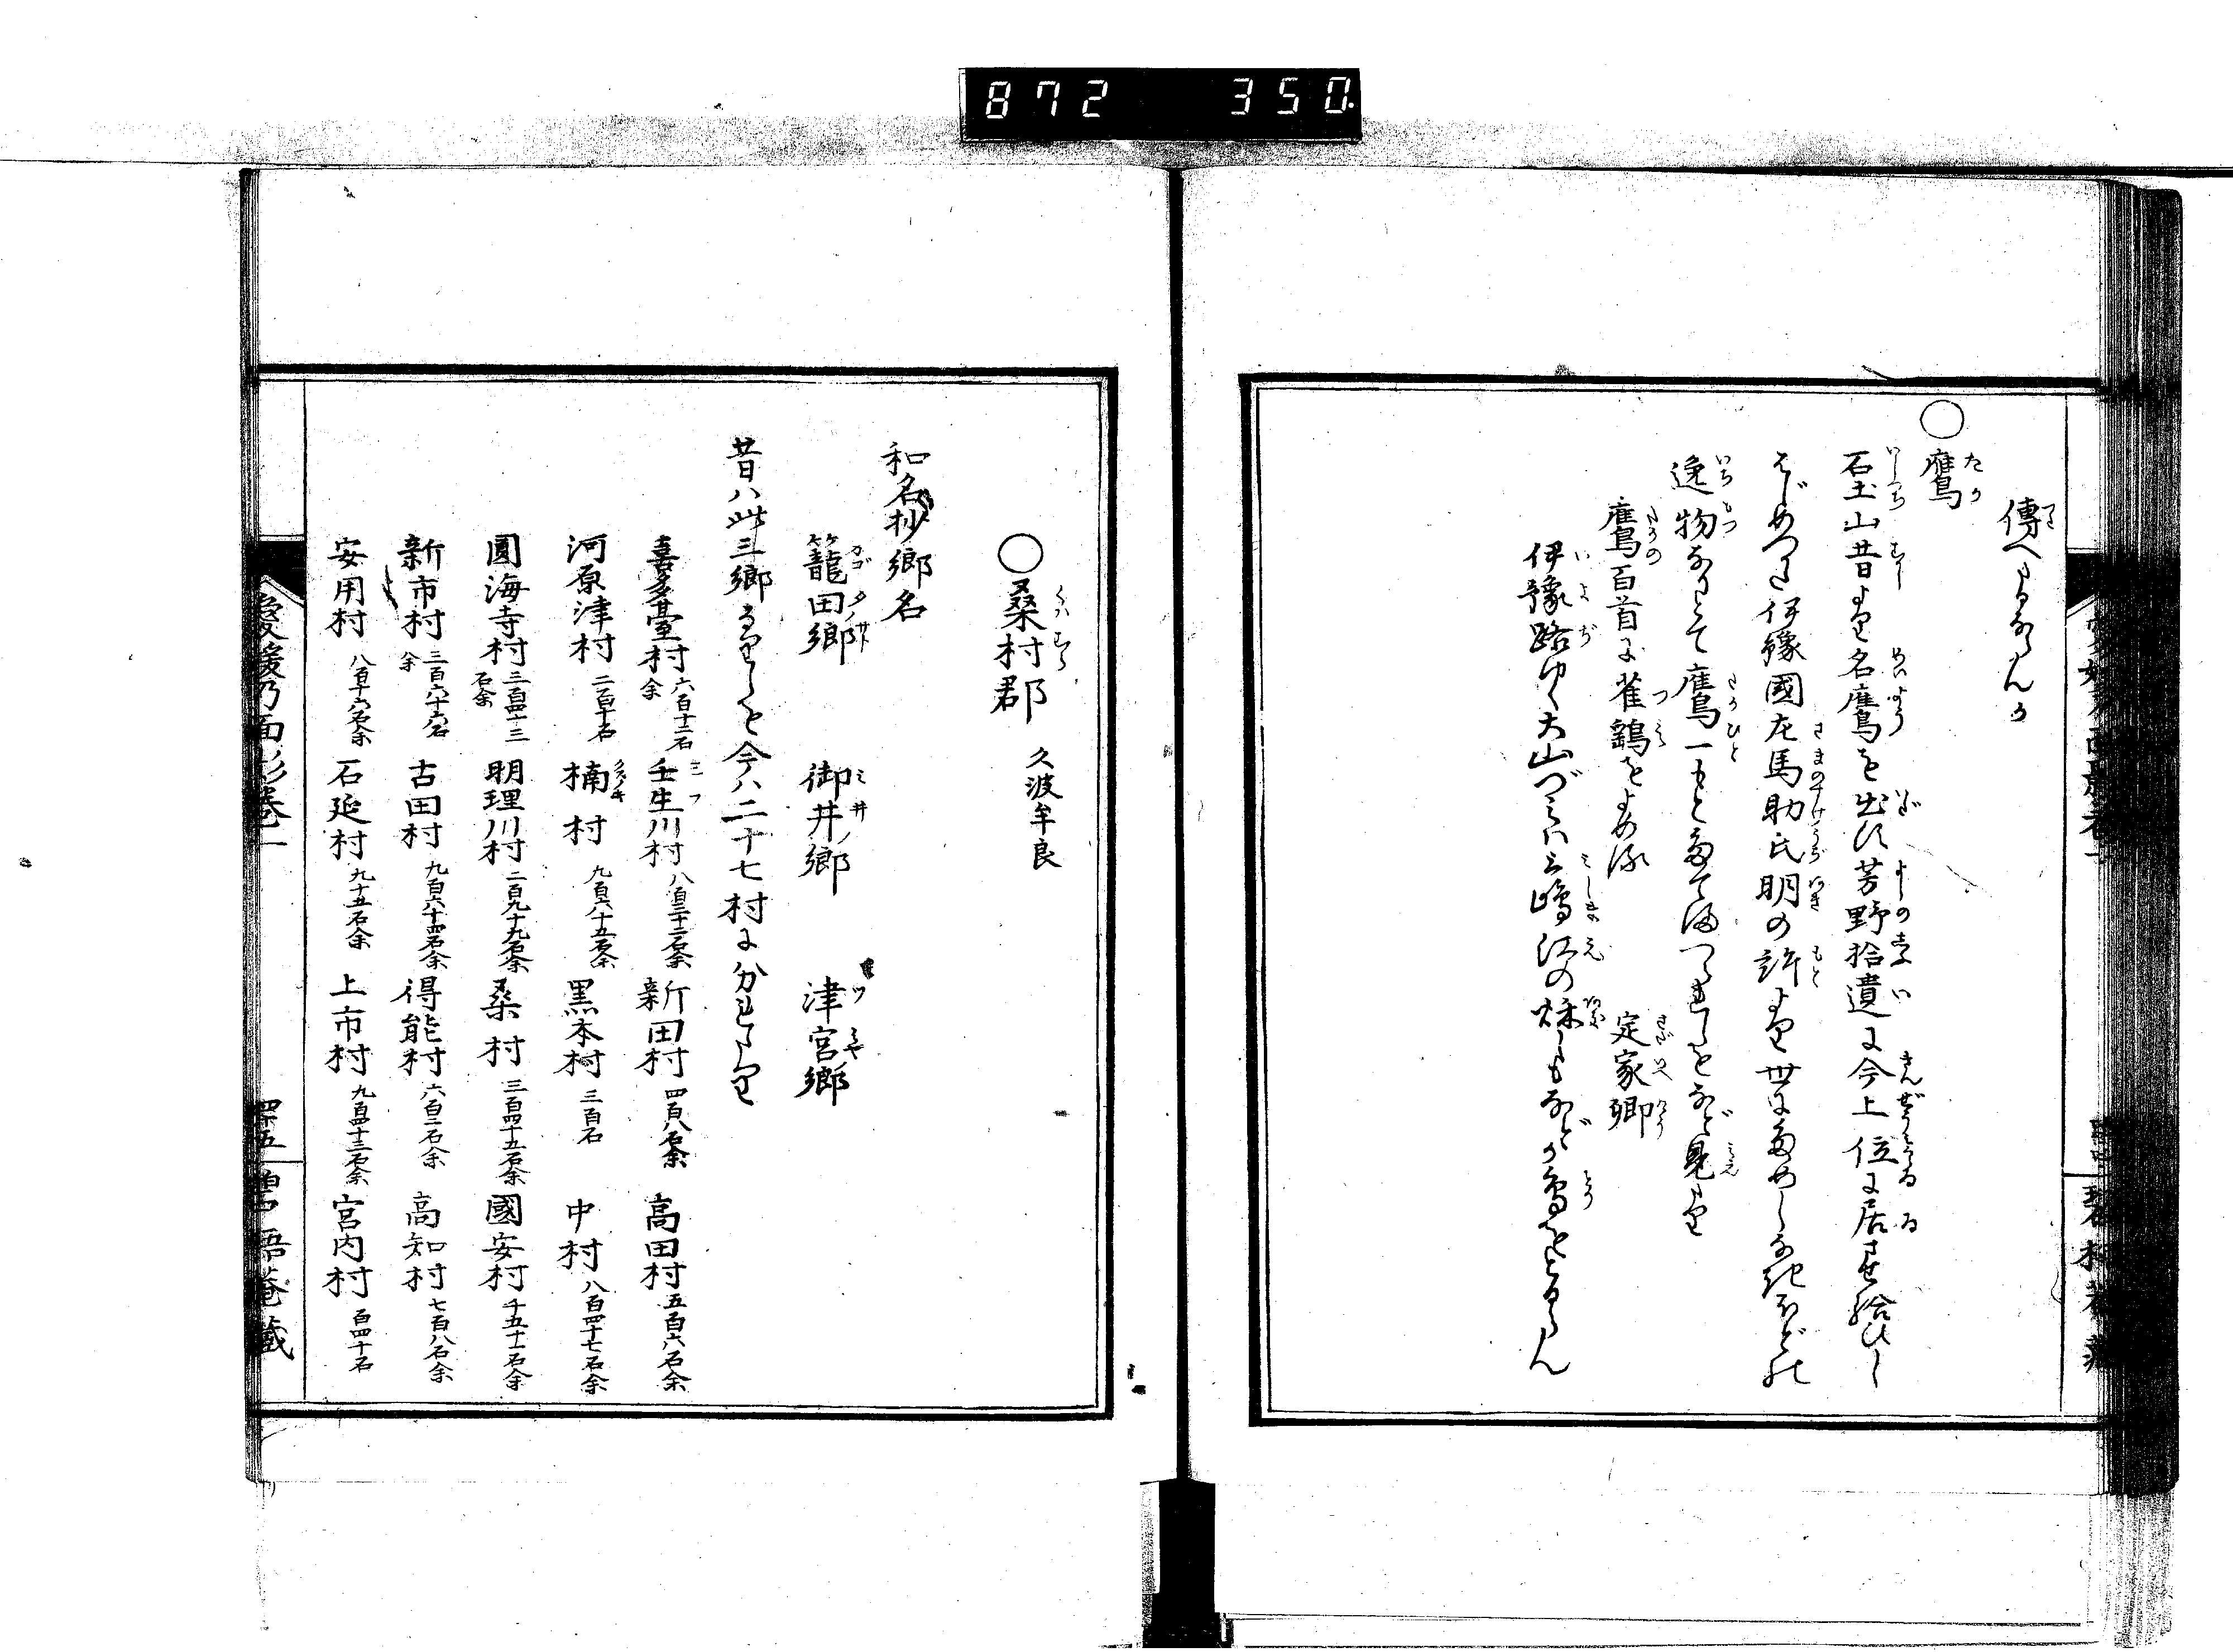 872 350
傳へたるならんか
○鷹
石土山昔より名鷹を出す芳野拾遺に今上位に居させ給ひし
はじめつかた伊豫國左馬助氏明の許より世にためしなきほどの
逸物なりとて鷹一もとたてまつられしをなど見えたり
鷹百首に雀鷂をよめる 定家卿
伊豫路ゆく大山づみは三嶋江の秋しもなどか鳥をとるらん
○桑村郡 久波牟良
和名抄郷名
籠田郷 御井郷 津宮郷
昔ハ此三郷なりしを今ハ二十七村に分れたり
喜多臺村 六百十二石余 壬生川村 八百三十二石余 新田村 四百八石余 高田村 五百六石余
河原津村 二百十石 楠村 九百六十五石余 黒本村 三百石 中村 八百四十七石余
圓海寺村 三百四十三石余 明理川村 二百九十九石余 桑村 三百四十五石余 國安村 千五十一石余
新市村 三百六十六石余 古田村 九百六十四石余 得能村 六百二石余 高知村 七百八石余
安用村 八百十六石余 石延村 九十五石余 上市村 九百四十三石余 宮内村 百四十石
愛媛乃面影巻一 四十五 碧梧菴蔵